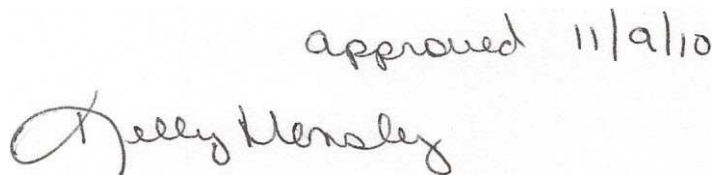 approved 11/9/10
Kelly Hensley